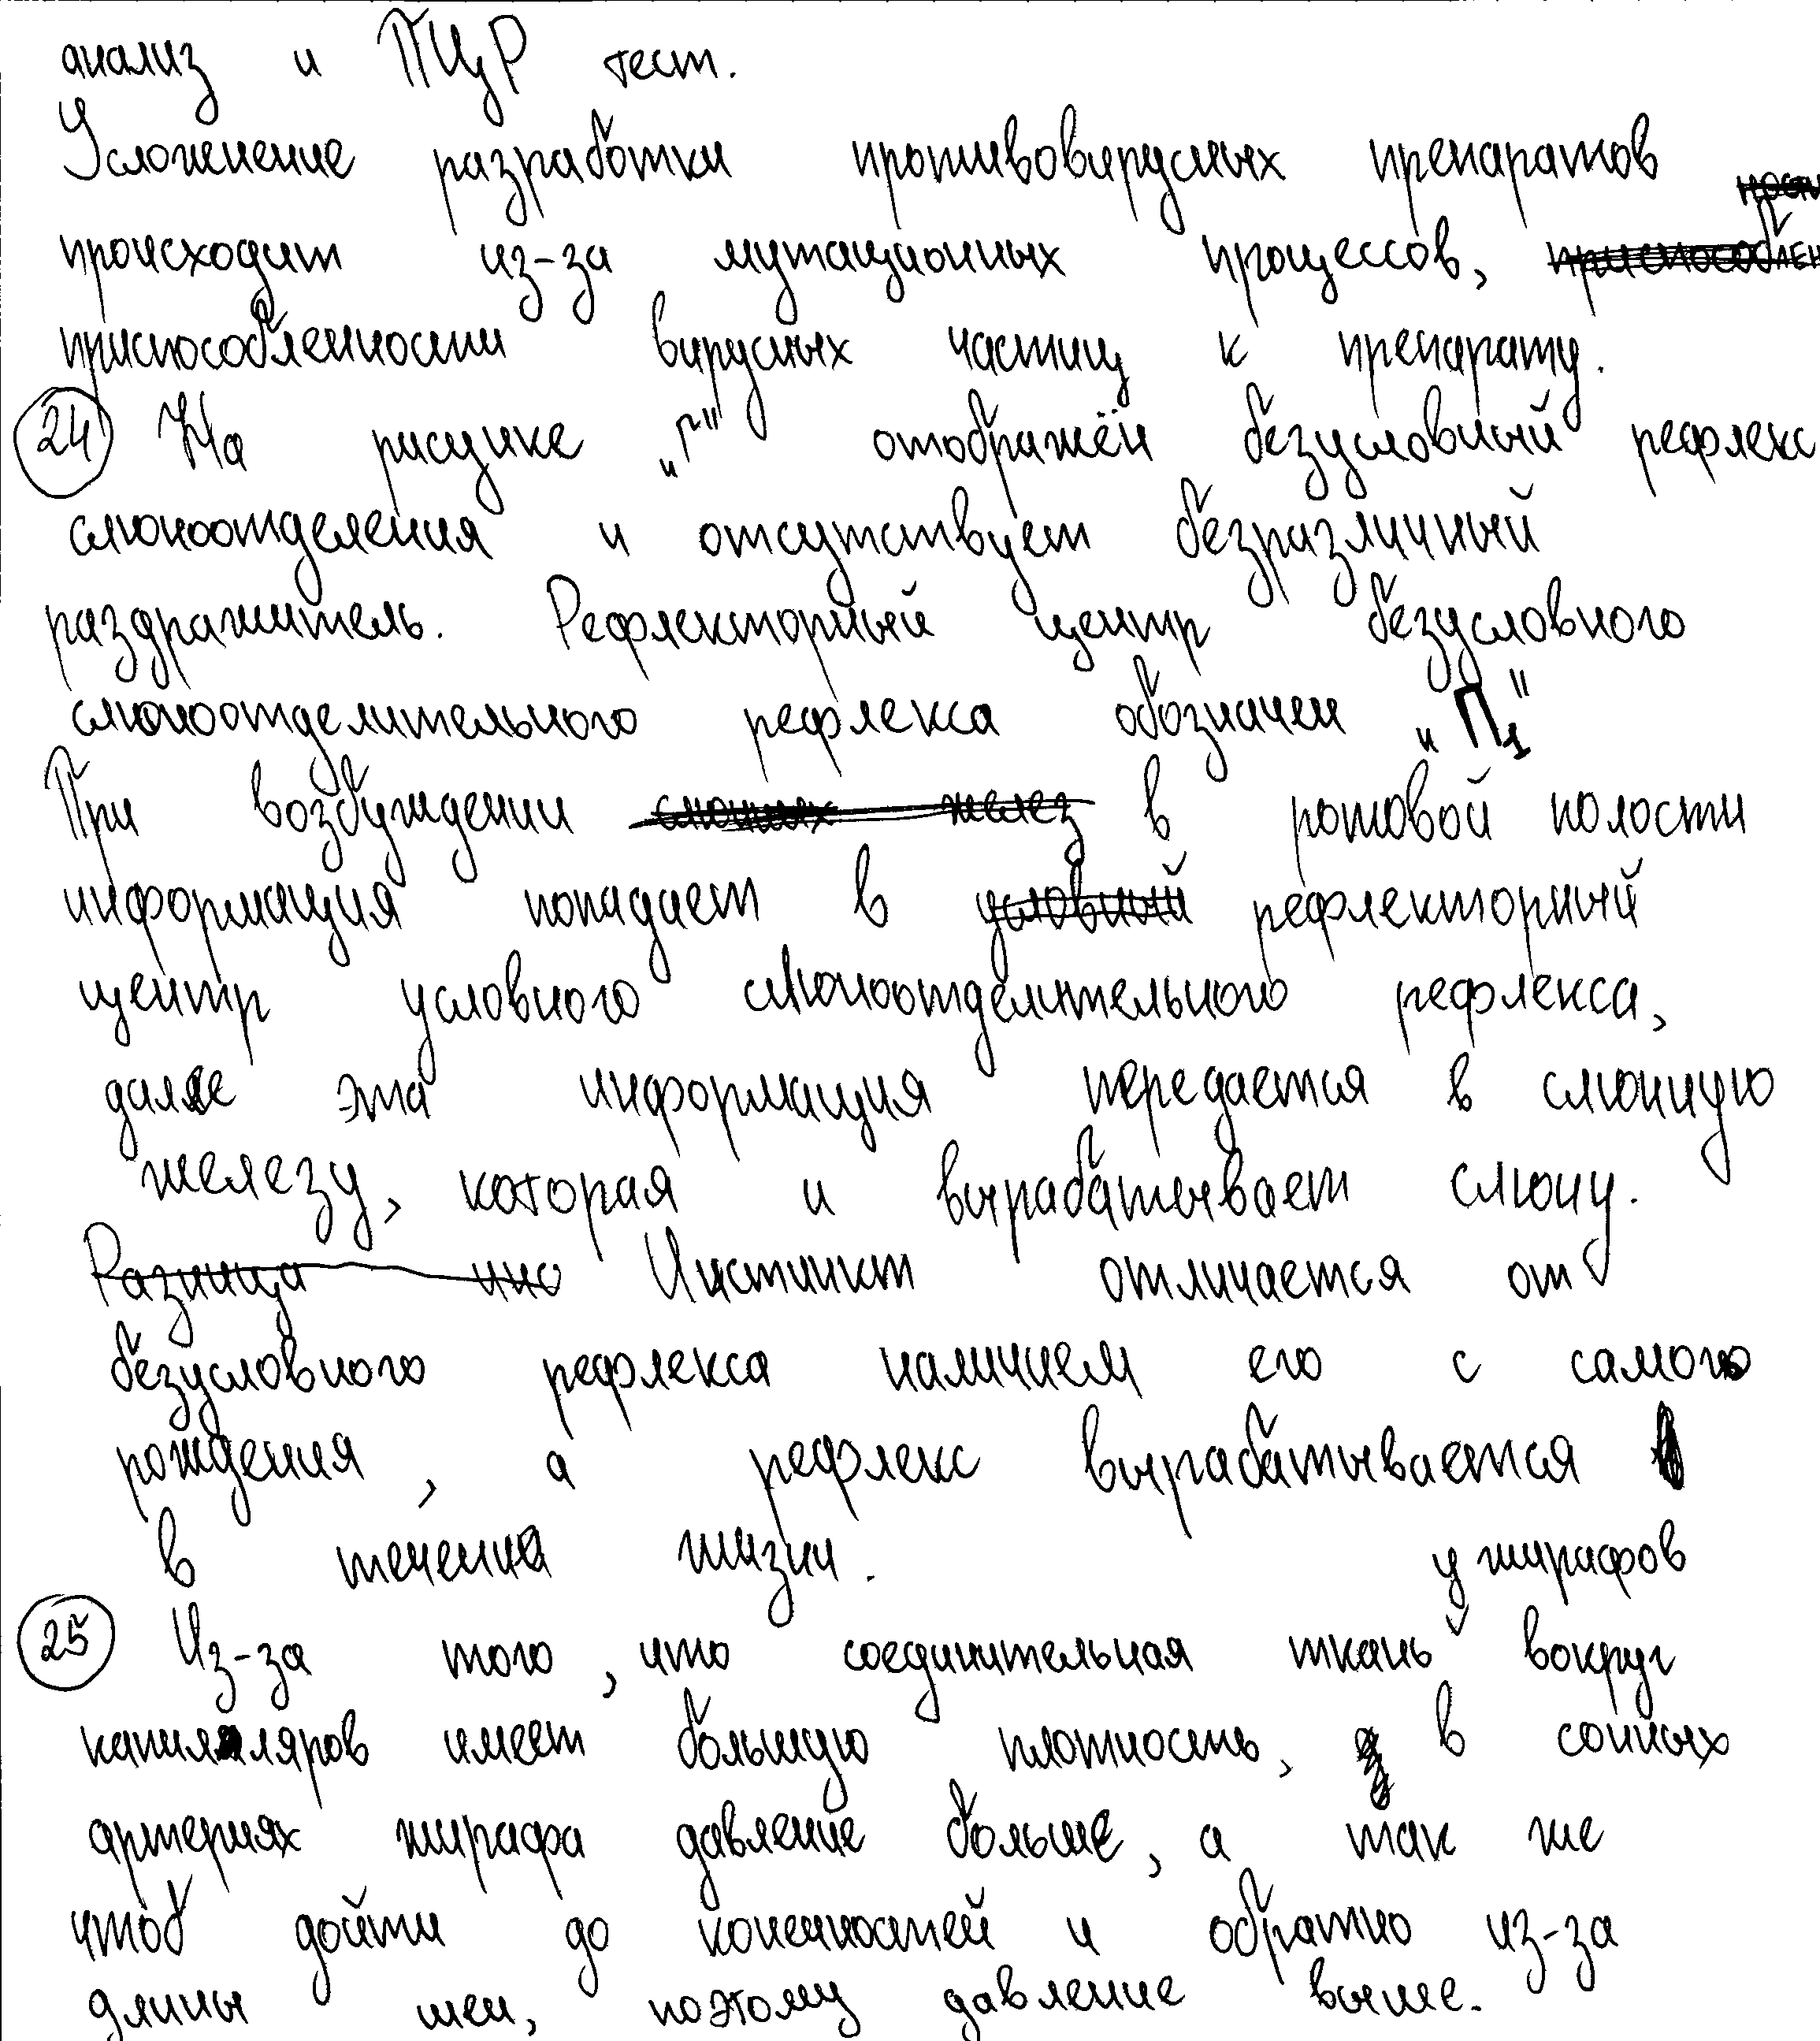 анализ и ПЦР тест.
Усложнение разработки противовирусных препаратов
происходит из-за мутационных процессов,
приспособленности вирусных частиц к препарату.
24 На рисунке „Г" отображён безусловный рефлекс
слюноотделения и отсутствует безразличный
раздражитель. Рефлекторный центр безусловного
слюноотделительного рефлекса обозначен „П1"
При возбуждении слюнных желез в ротовой полости
информация попадает в условный рефлекторный
центр условного слюноотделительного рефлекса,
далее эта информация передается в слюнную
железу, которая и вырабатывает слюну.
Разница инс Инстинкт отличается от
безусловного рефлекса наличием его с самого
рождения, а рефлекс вырабатывается
в течение жизни.
у жирафов
25 Из-за того, что соединительная ткань вокруг
капилляров имеет большую плотность, в сонных
артериях жирафа давление больше, а так же
чтоб дойти до конечностей и обратно из-за
длины шеи, поэтому давление выше.